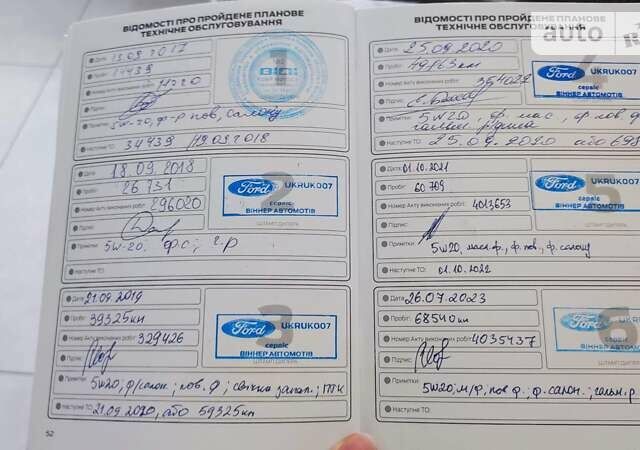 ВІДОМОСТІ ПРО ПРОЙДЕНЕ ПЛАНОВЕ
ТЕХНІЧНЕ ОБСЛУГОВУВАННЯ
Дата: 13.09.2017
Пробіг: 14439
Номер Акту виконаних робіт:
Підпис:
Примітки: 5W-20, ф-р пов, салону
Наступне ТО: 34439 /12.09.2018
Дата: 18.09.2018
Пробіг: 26731
Номер Акту виконаних робіт: 296020
Підпис:
Примітки: 5W-20; ф.с; г.р
Наступне ТО:
2
Ford UKRUK007
сервіс
ВІННЕР АВТОМОТІВ
ШТАМП ДИЛЕРА
Дата: 21.09.2019
Пробіг: 39325км
Номер Акту виконаних робіт: 329426
Підпис:
Примітки: 5W20, ф/салон.; пов. ф; свічки запал.; ГТК
Наступне ТО: 21.09.2020, або 59325км
3
Ford UKRUK007
сервіс
ВІННЕР АВТОМОТІВ
ШТАМП ДИЛЕРА
52
ВІДОМОСТІ ПРО ПРОЙДЕНЕ ПЛАНОВЕ
ТЕХНІЧНЕ ОБСЛУГОВУВАННЯ
auto
Дата: 25.09.2020
Пробіг: 49763км
Номер Акту виконаних робіт: 354022
Підпис:
Примітки: 5W20, ф. мас, ф. пов ф.
гальм. рідина
Наступне ТО:
Ford UKRUK
ВІННЕР АВТОМОТІВ
Дата: 01.10.2021
Пробіг: 60 709
Номер Акту виконаних робіт: 4013653
Підпис:
Примітки: 5W20, масл. ф., ф. пов., ф. салону
Наступне ТО: 01.10.2022
5
Ford UKRUK007
сервіс
ВІННЕР АВТОМОТІВ
ШТАМП ДИЛЕРА
Дата: 26.07.2023
Пробіг: 68540км
Номер Акту виконаних робіт: 4035437
Підпис:
Примітки: 5W20, м/ф, пов ф.; ф. салон.; гальм. р
Наступне ТО:
6
Ford UKRUK
сервіс
ВІННЕР АВТОМОТІВ
ШТАМП ДИЛЕРА